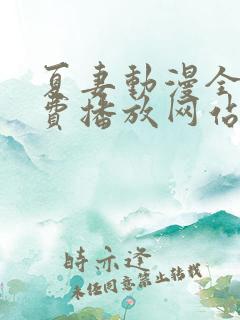 夏妻動漫全
費播放网佔
時亦逢
未经同意禁止转载